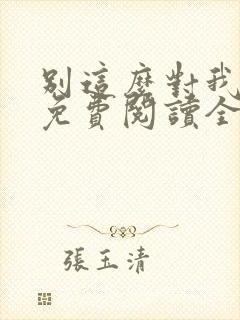 別這麼對我
免費閱讀全
張玉清